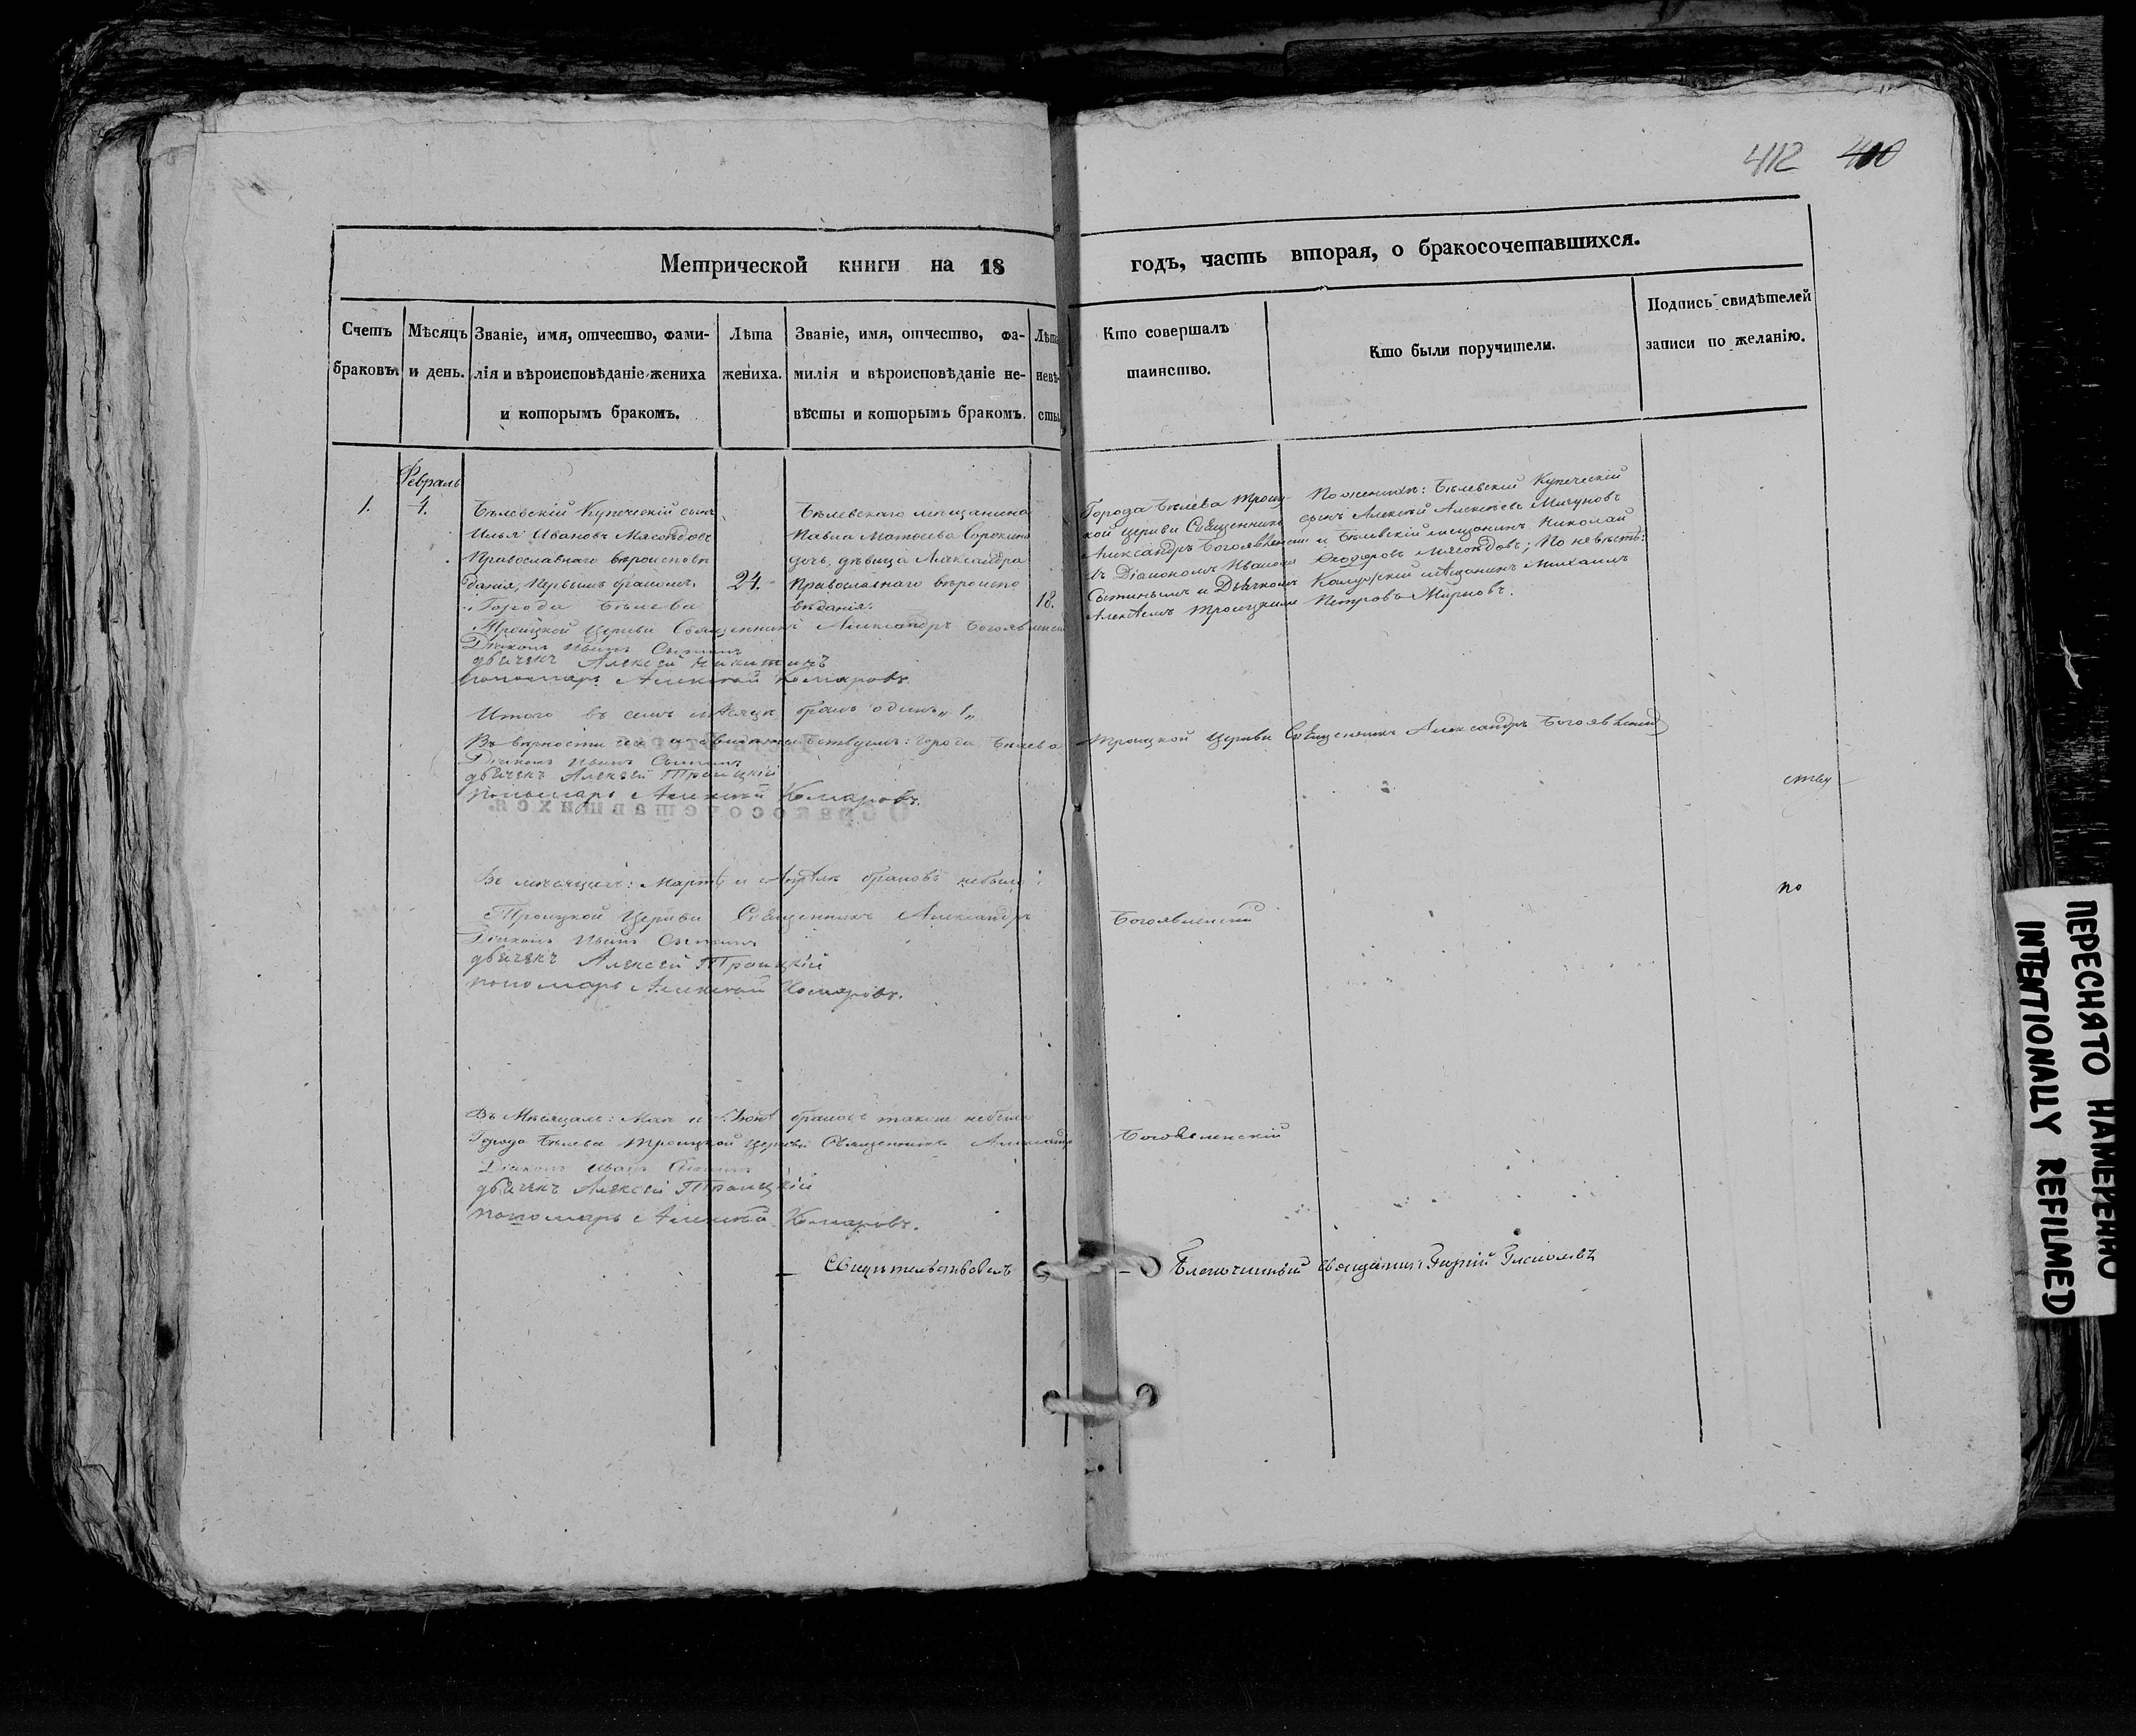 412 410
Метрической книги на 18
годъ, часть вторая, о бракосочетавшихся.
Счетъ браковъ.
Мѣсяцъ и день.
Званіе, имя, отчество, фами-
лія и вѣроисповѣданіе жениха
и которымъ бракомъ.
Лѣта
жениха.
Званіе, имя, отчество, фа-
милія и вѣроисповѣданіе не-
вѣсты и которымъ бракомъ.
Лѣта
невѣ-
сты.
Кто совершалъ
таинство.
Кто были поручители.
Подпись свидѣтелей
записи по желанію.
Февраль
1.
4.
Бѣлевскій Купеческій сынъ
Илья Ивановъ Мясоѣдовъ
Православнаго вѣроисповѣ
данія, первымъ бракомъ.
24.
Бѣлевскаго мѣщанина
Павла Матвѣева Сорокина
дочь, дѣвица Александра
Православнаго вѣроиспо
вѣданія.
18.
Города Бѣлева Троиц-
кой церкви Священникъ
Александръ Богоявленскій
съ Діакономъ Иваномъ
Сытинымъ и Дьячкомъ
Алексѣемъ Троицкимъ
По женихѣ: Бѣлевскій Купеческій
сынъ Алексѣй Алексѣевъ
и Бѣлевскій мѣщанинъ Николай
Ѳеодоровъ Мясоѣдовъ; По невѣстѣ:
Калужскій мѣщанинъ Михаилъ
Петровъ
Города Бѣлева
Троицкой Церкви Священникъ Александръ Богоявленскій
Діаконъ Иванъ Сытинъ
дьячекъ Алексей Никитинъ
пономарь Алексѣй Комаровъ.
Итого въ семъ мѣсяцѣ бракъ одинъ „1„
Въ вѣрности сего свидѣтельствуемъ: Города Бѣлева Троицкой Церкви Священникъ Александръ Богоявленскій
Діаконъ Иванъ Сытинъ
дьячекъ Алексей Троицкій
пономарь Алексѣй Комаровъ.
Въ мѣсяцахъ: Мартѣ и Апрѣлѣ браковъ небыло:
по
Троицкой Церкви Священникъ Александръ Богоявленскій
Діаконъ Иванъ Сытинъ
дьячекъ Алексей Троицкій
пономарь Алексѣй Комаровъ.
Въ Мѣсяцахъ: Маѣ и Іюнѣ браковъ также небыло
Города Бѣлева Троицкой Церкви Священникъ Александръ Богоявленскій
Діаконъ Иванъ Сытинъ
дьячекъ Алексей Троицкій
пономарь Алексѣй Комаровъ.
Свидѣтельствовалъ – Благочинный Священникъ
ПЕРЕСНЯТО НАМЕРЕННО
INTENTIONALLY REFILMED